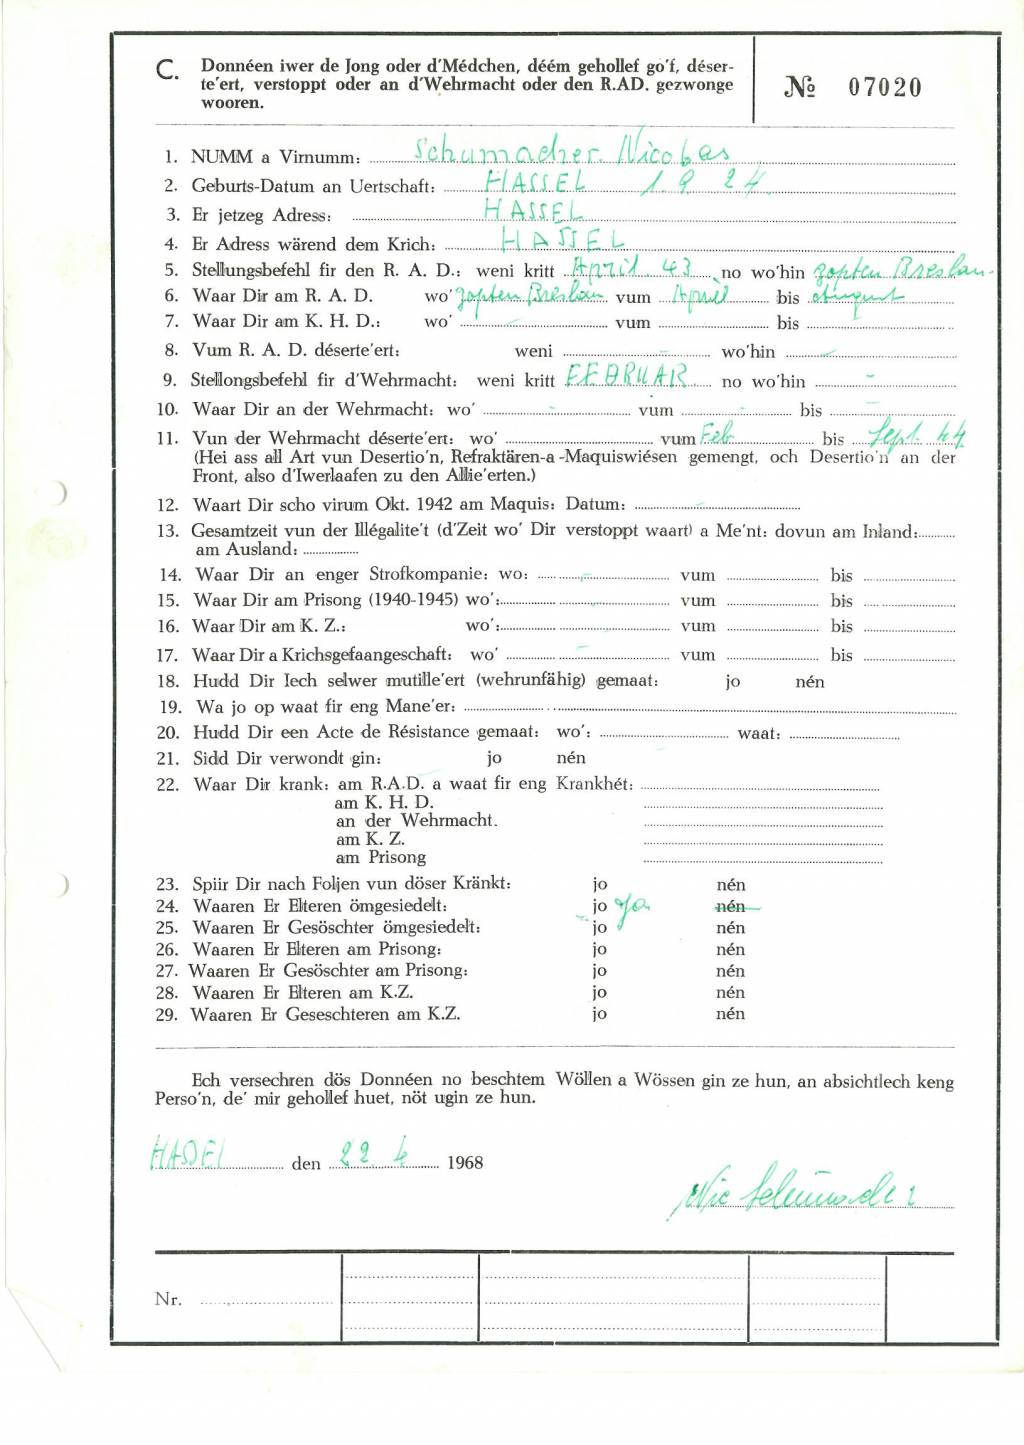 C. Donnéen iwer de Jong oder d'Médchen, déém gehollef go'f, déser-
te'ert, verstoppt oder an d'Wehrmacht oder den R.AD. gezwonge
wooren.
№ 07020
1. NUMM a Virnumm: Schumacher Nicolas
2. Geburts-Datum an Uertschaft: HASSEL 1 9 24
3. Er jetzeg Adress: HASSEL
4. Er Adress wärend dem Krich: HASSEL
5. Stellungsbefehl fir den R. A. D.: weni kritt April 43 no wo'hin Zopten Breslau
6. Waar Dir am R. A. D. wo' Zopten Breslau vum April bis August
7. Waar Dir am K. H. D.: wo' vum bis
8. Vum R. A. D. déserte'ert: weni wo'hin
9. Stellongsbefehl fir d'Wehrmacht: weni kritt FEBRUAR no wo'hin -
10. Waar Dir an der Wehrmacht: wo' - vum - bis -
11. Vun der Wehrmacht déserte'ert: wo' vum Feb bis Sept. 44
(Hei ass all Art vun Desertio'n, Refraktären-a -Maquiswiésen gemengt, och Desertio'n an der
Front, also d'Iwerlaafen zu den Allie'erten.)
12. Waart Dir scho virum Okt. 1942 am Maquis: Datum: -
13. Gesamtzeit vun der Illégalite't (d'Zeit wo' Dir verstoppt waart) a Me'nt: dovun am Inland:
am Ausland:
14. Waar Dir an enger Strofkompanie: wo: - vum bis
15. Waar Dir am Prisong (1940-1945) wo': vum bis
16. Waar Dir am K. Z.: wo': vum bis
17. Waar Dir a Krichsgefaangeschaft: wo' - vum bis
18. Hudd Dir Iech selwer mutille'ert (wehrunfähig) gemaat: jo nén
19. Wa jo op waat fir eng Mane'er:
20. Hudd Dir een Acte de Résistance gemaat: wo': waat:
21. Sidd Dir verwondt gin: jo nén
22. Waar Dir krank: am R.A.D. a waat fir eng Krankhét:
am K. H. D.
an der Wehrmacht.
am K. Z.
am Prisong
23. Spiir Dir nach Foljen vun döser Kränkt: jo nén
24. Waaren Er Elteren ömgesiedelt: jo ja nén
25. Waaren Er Gesöschter ömgesiedelt: jo nén
26. Waaren Er Elteren am Prisong: jo nén
27. Waaren Er Gesöschter am Prisong: jo nén
28. Waaren Er Elteren am K.Z. jo nén
29. Waaren Er Geseschteren am K.Z. jo nén
Ech versechren dös Donnéen no beschtem Wöllen a Wössen gin ze hun, an absichtlech keng
Perso'n, de' mir gehollef huet, nöt ugin ze hun.
HASSEL den 22 4 1968
Nic Schumacher
Nr.